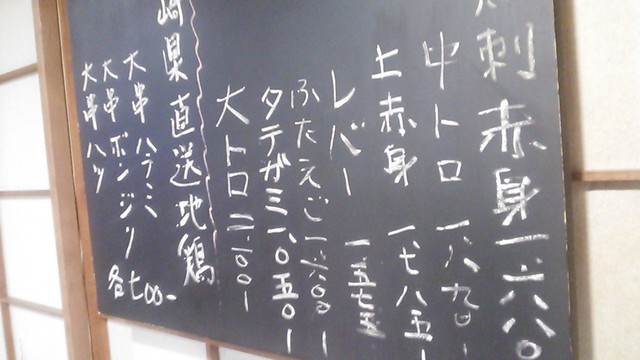 刺 赤身 一、六八〇
中トロ 一、六九〇ー
上赤身 一、七八五ー
レバー 一、五七五
ふたえご 一、六〇〇ー
タテガミ 一、〇五〇ー
大トロ 二、一〇〇ー
崎県直送地鶏
大串 ハラミ
大串 ボンジリ 各七〇〇ー
大串 ハツ